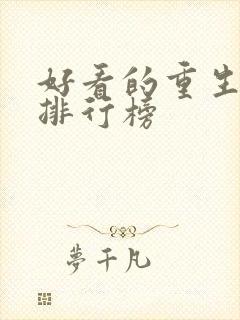 好看的重生
排行榜
夢千凡